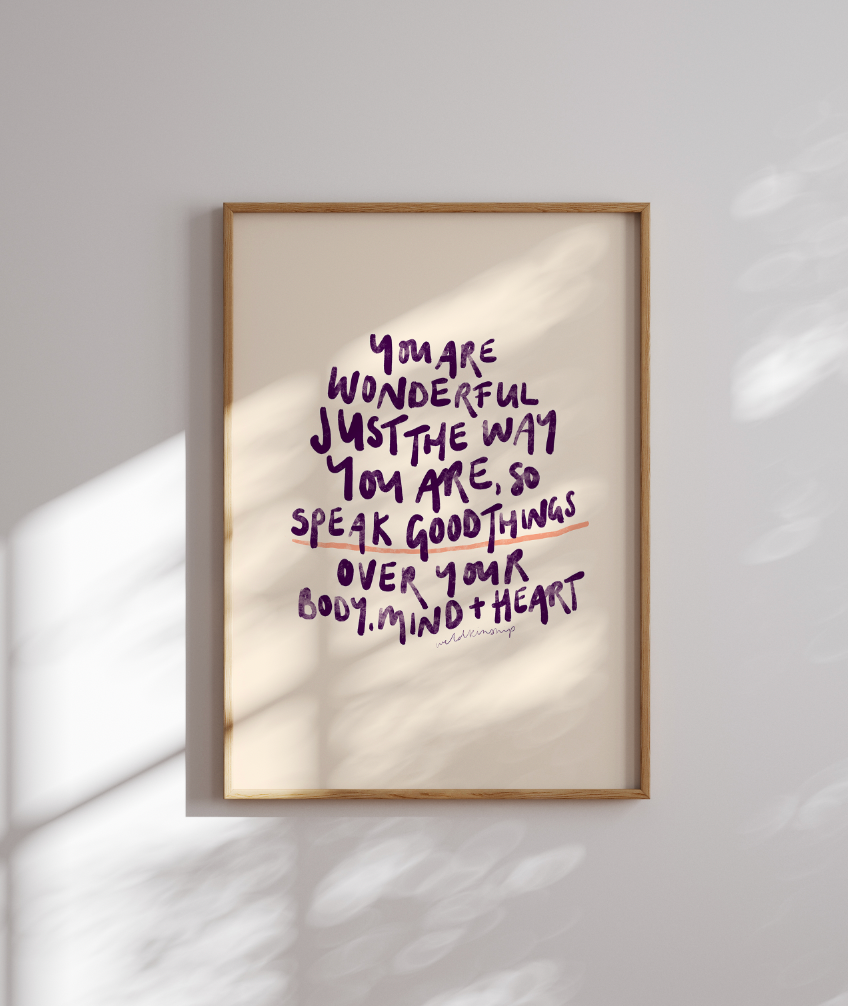 YOU ARE
WONDERFUL
JUST THE WAY
YOU ARE, SO
SPEAK GOOD THINGS
OVER YOUR
BODY, MIND + HEART